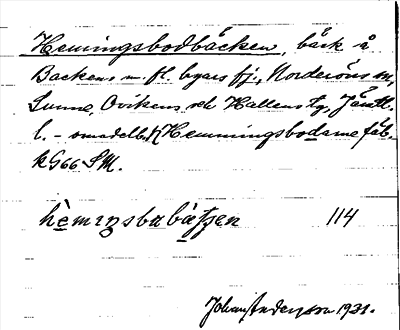 Hemingsbodbäcken, bäck å
Backens m. fl. byars fj., Norderöns sn,
Sunne, Ovikens och Hallens tg, Jämtl.
l. - omedelb. Hemmingsbodarne fäb.
k G66 SM.
hèminsbubä̀tjen 114
Johan Anderson 1931.